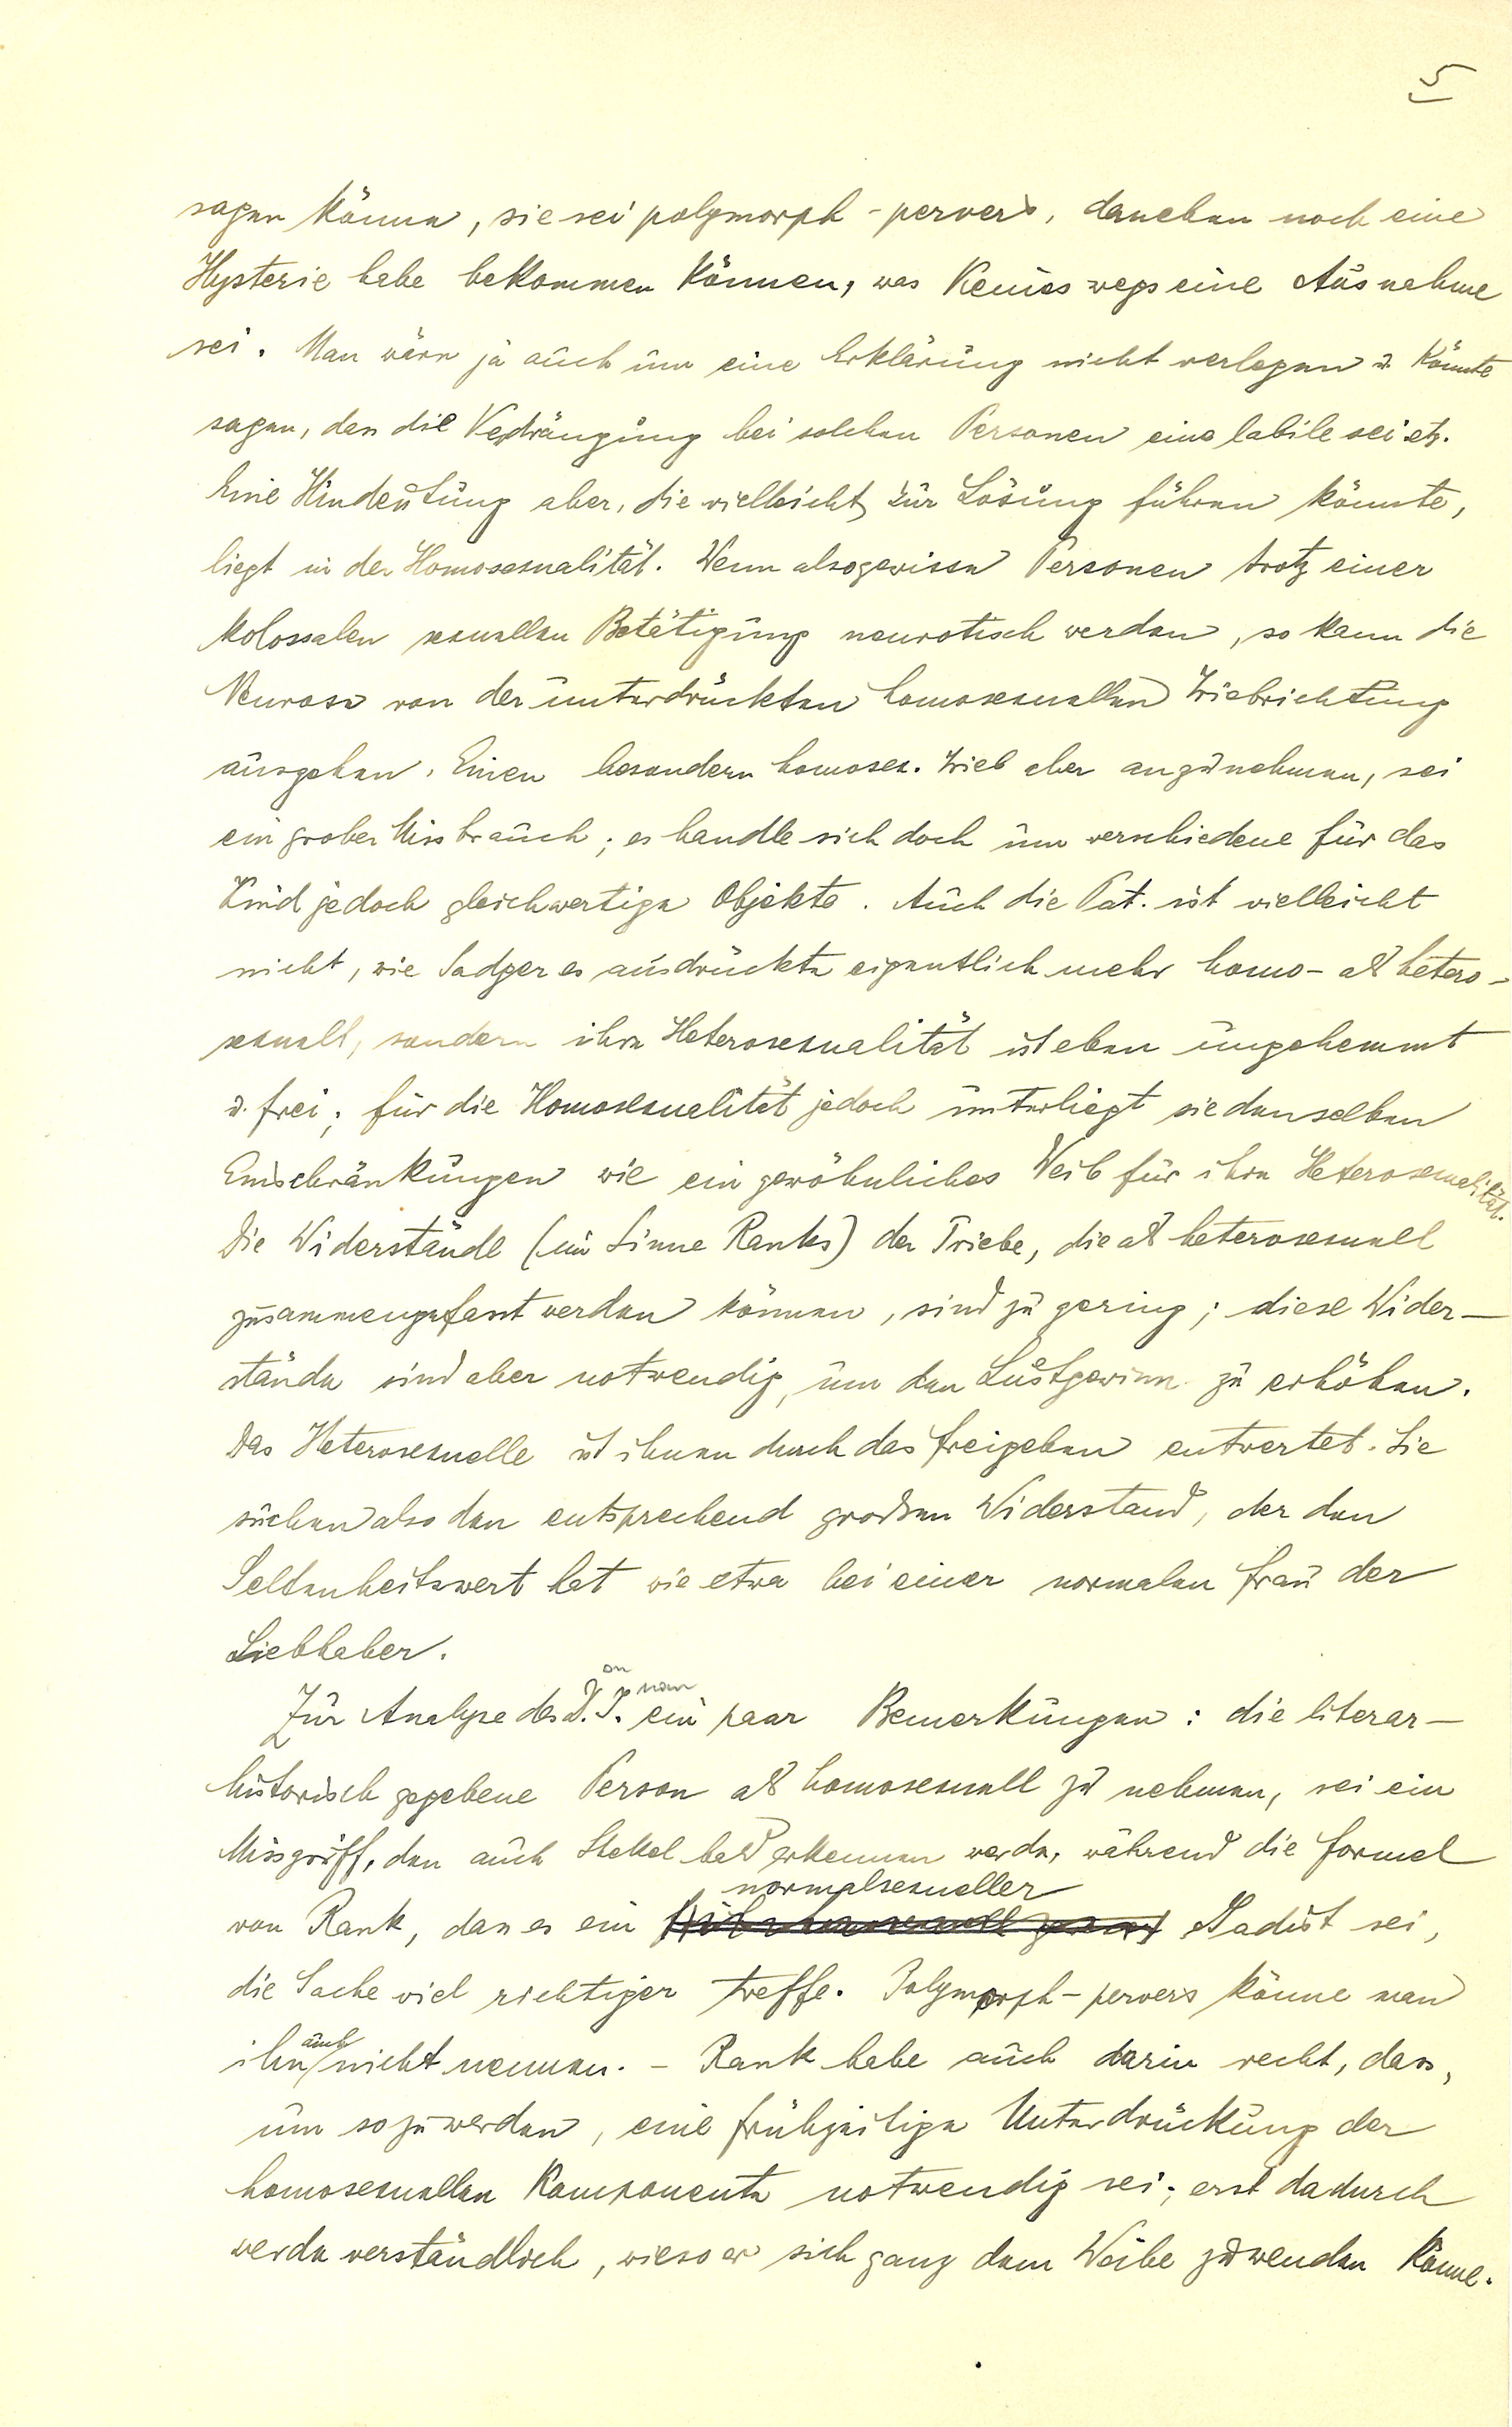 5
sagen könne, sie sei polymorph-pervers, daneben noch eine
Hysterie habe bekommen können, was keineswegs eine Ausnahme
sei. Man wäre ja auch um eine Erklärung nicht verlegen u. könnte
sagen, dass die Verdrängung bei solchen Personen eine labile sei etz.
Eine Hindeutung aber, die vielleicht zur Lösung führen könnte,
liegt in der Homosexualität. Wenn also gewisse Personen trotz einer
kolossalen sexuellen Betätigung neurotisch werden, so kann die
Neurose von der unterdrückten homosexuellen Triebrichtung
ausgehen. Einen besondern homosex. Trieb aber anzunehmen, sei
ein grober Missbrauch; es handle sich doch um verschiedene für das
Kind jedoch gleichwertige Objekte. Auch die Pat. ist vielleicht
nicht, wie Sadger es ausdrückte eigentlich mehr homo- als hetero-
sexuell, sondern ihre Heterosexualität ist eben ungehemmt
u. frei; für die Homosexualität jedoch unterliegt sie denselben
Einschränkungen wie ein gewöhnliches Weib für ihre Heterosexualität.
Die Widerstände (im Sinne Ranks) der Triebe, die als heterosexuell
zusammengefasst werden können, sind zu gering; diese Wider-
stände sind aber notwendig, um den Lustgewinn zu erhöhen.
Das Heterosexuelle ist ihnen durch das Freigeben entwertet. Sie
suchen also den entsprechend grossen Widerstand, der den
Seltenheitswert hat wie etwa bei einer normalen Frau der
Liebhaber.
on uan
Zur Analyse des D. J. ein paar Bemerkungen: die literar-
historisch gegebene Person als homosexuell zu nehmen, sei ein
Missgriff, den auch Stekel bald erkennen werde, während die Formel
normalsexueller
von Rank, dass es ein Sadist sei,
die Sache viel richtiger treffe. Polymorph-pervers könne man
auch
ihn nicht nennen. - Rank habe auch darin recht, dass,
um so zu werden, eine frühzeitige Unterdrückung der
homosexuellen Komponente notwendig sei; erst dadurch
werde verständlich, wieso er sich ganz dem Weibe zuwenden könne.